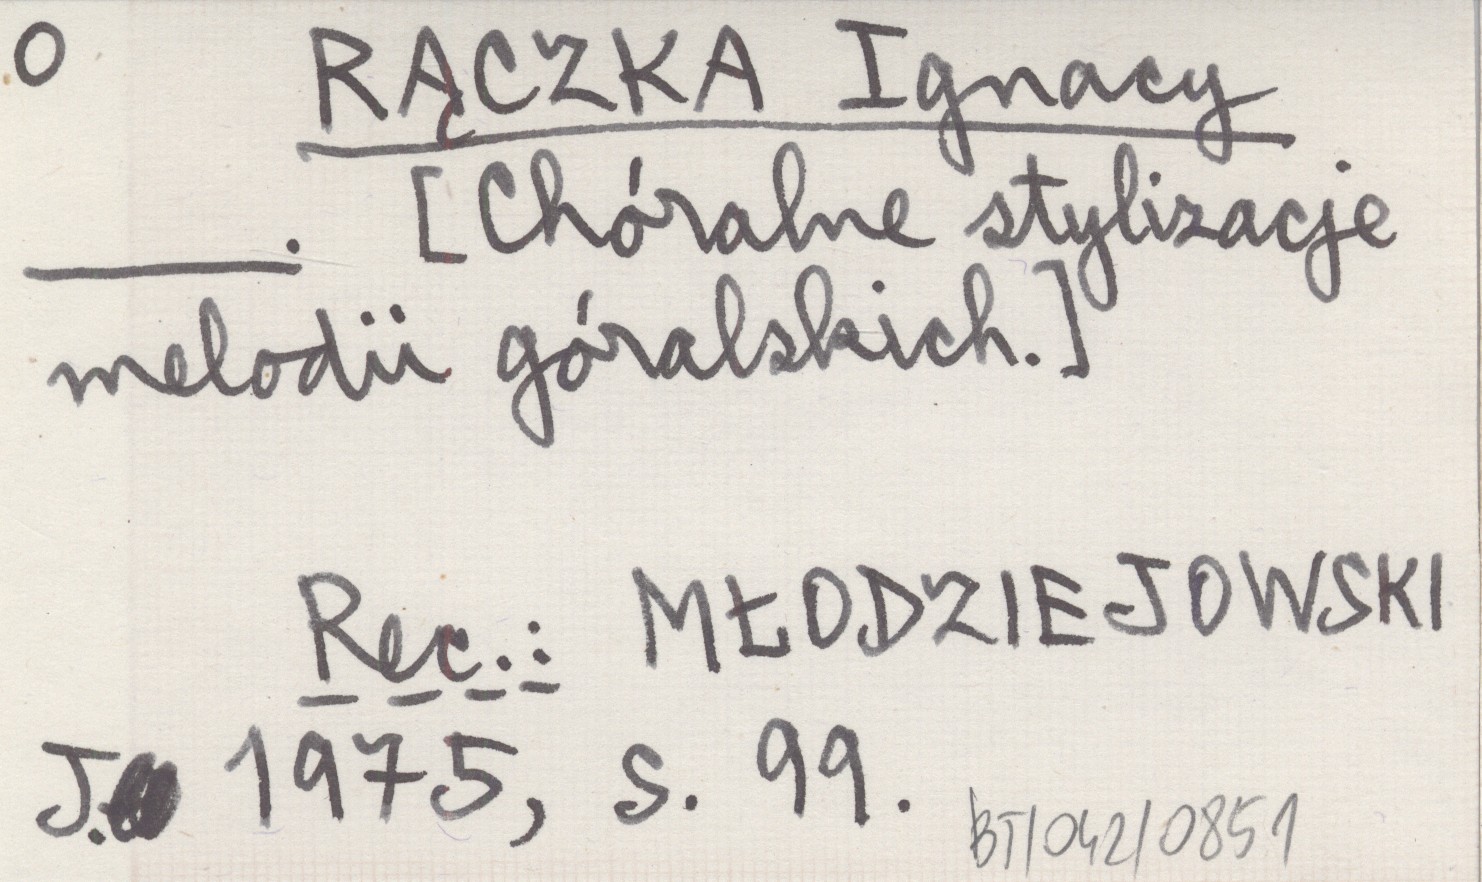 O RĄCZKA Ignacy
______. [Chóralne stylizacje
melodii góralskich.]
Rec.: MŁODZIEJOWSKI
J. 1975, s. 99.
BT/042/0851